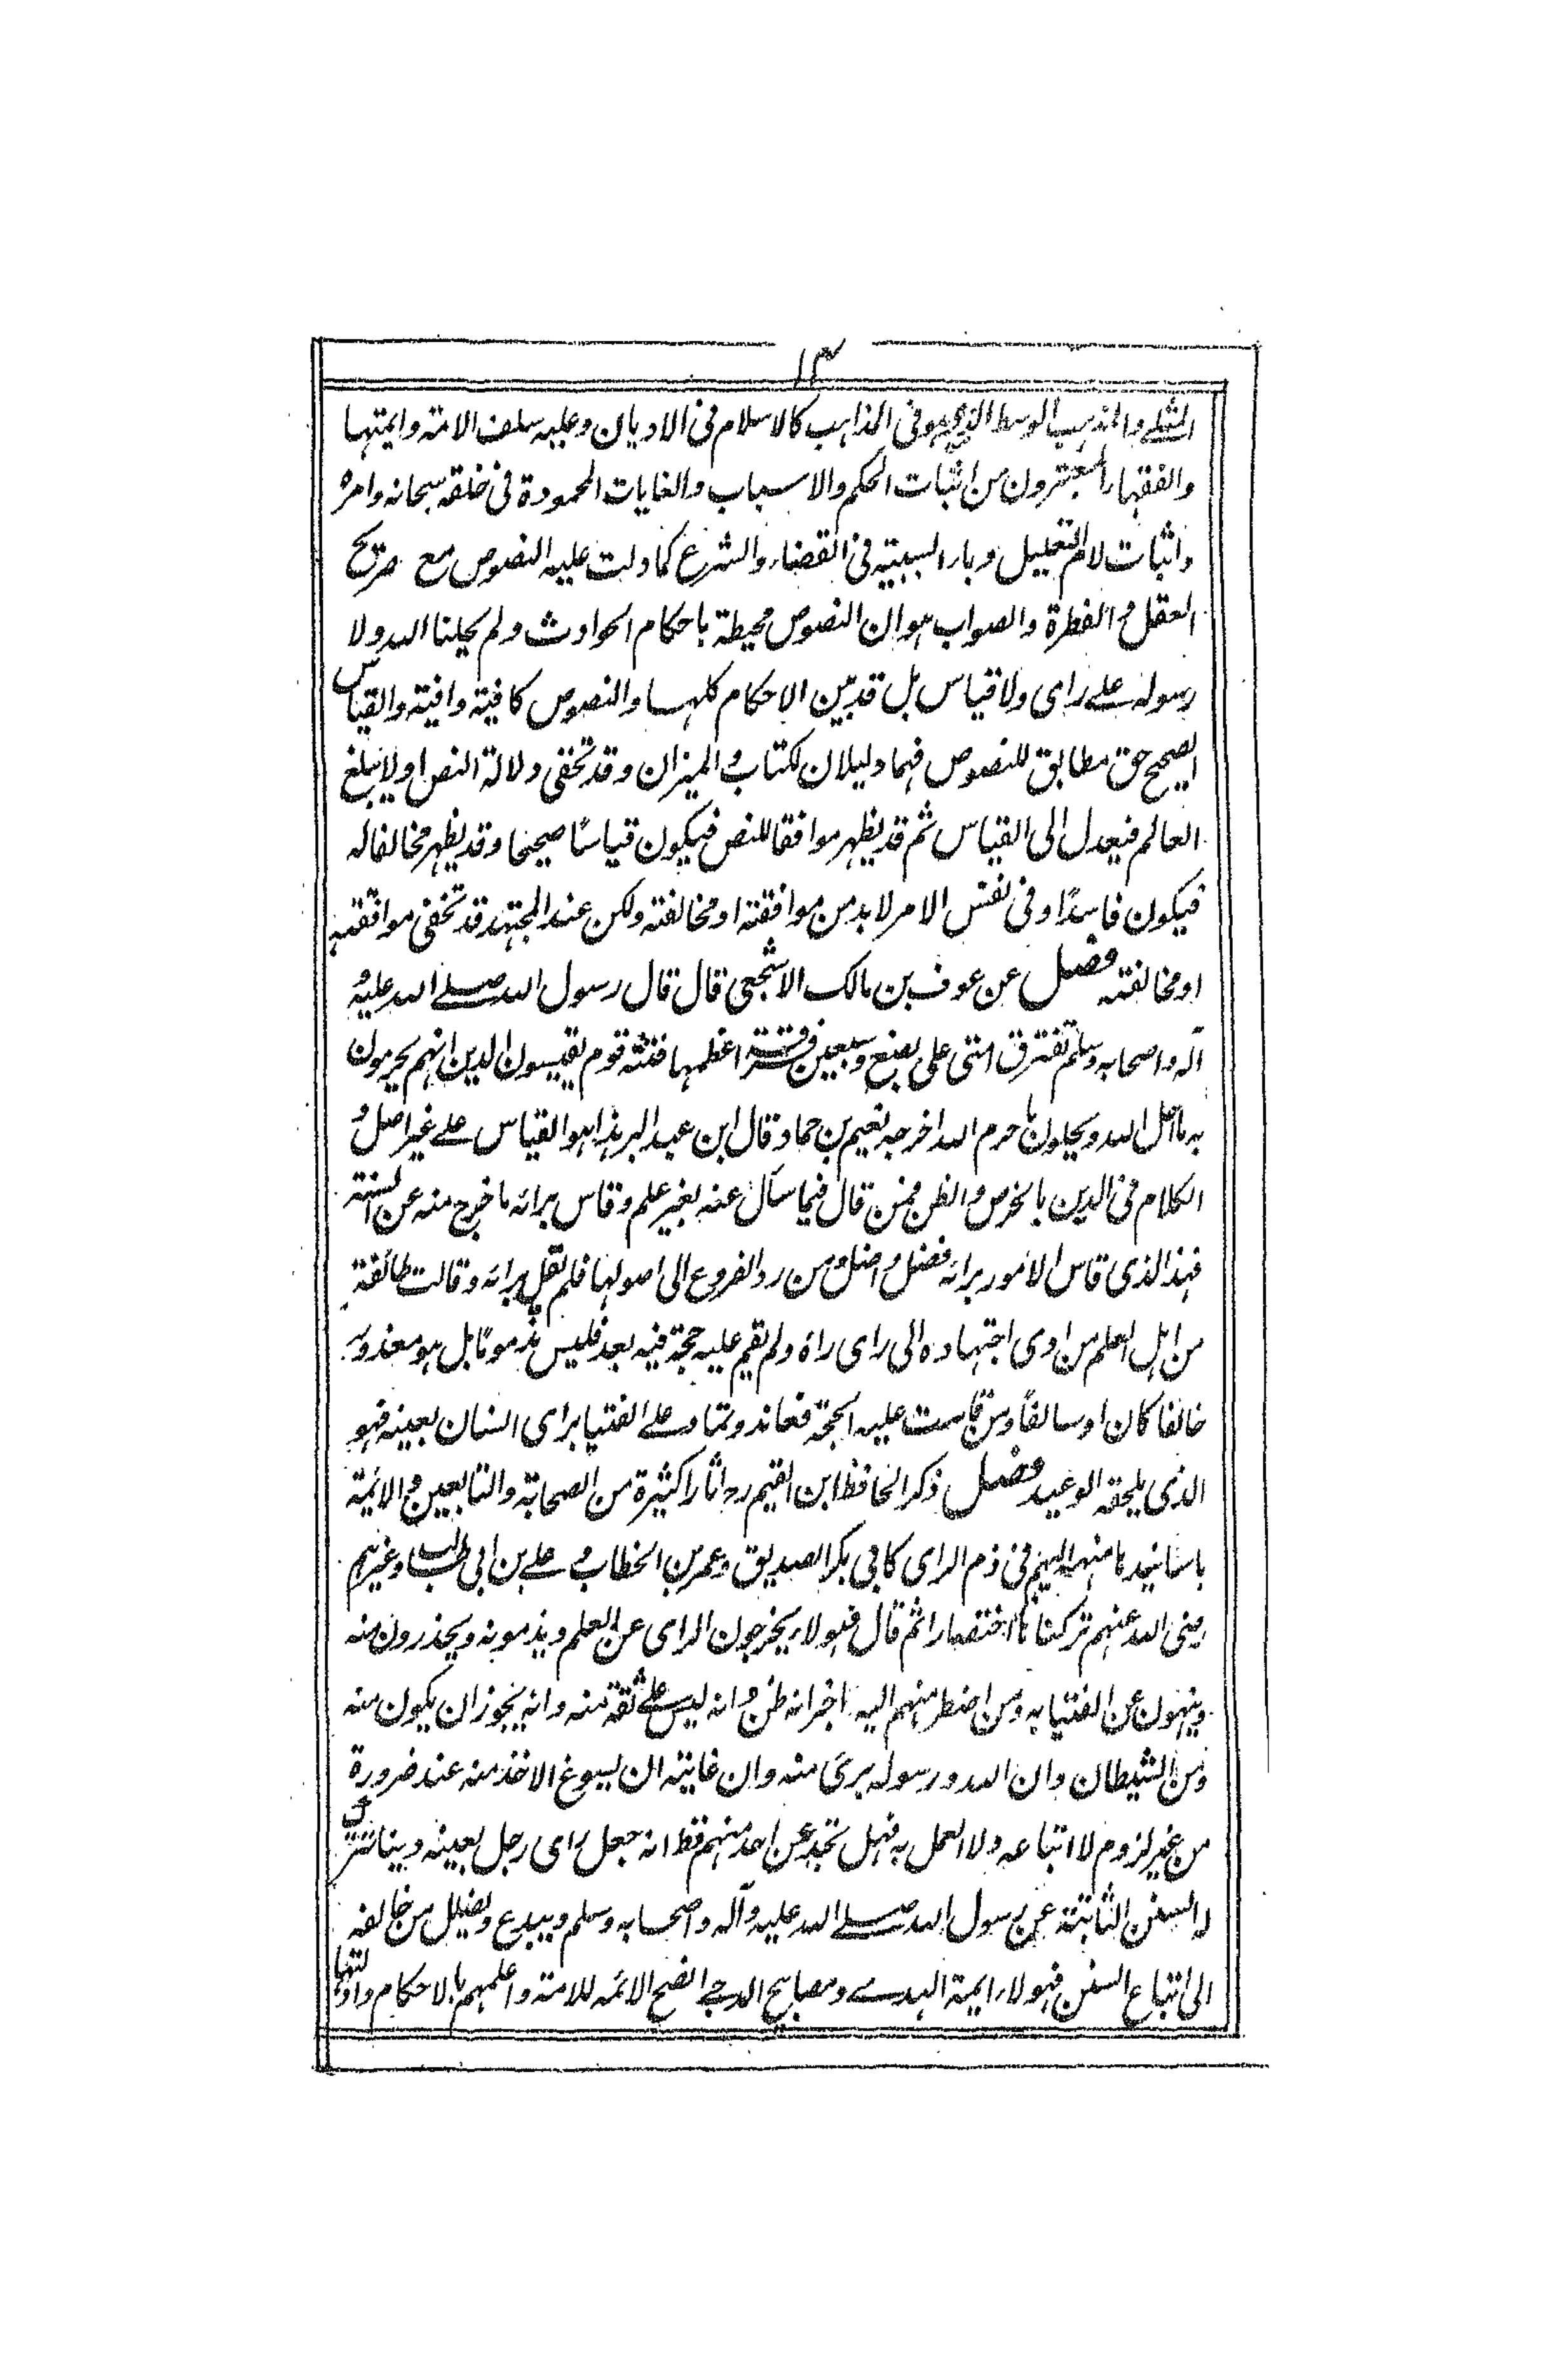 ١٣
المثلى والمذهب الوسط الذي هو في المذاهب كالاسلام في الاديان وعليه سلف الامة وايمتها
والفقهاء المعتبرون من اثبات الحكم والاسباب والغايات المحمودة في خلقه سبحانه وامره
واثبات لام التعليل وباء السببية في القضاء والشرع كما دلت عليه النصوص مع صريح
العقل والفطرة والصواب هو ان النصوص محيطة باحكام الحوادث ولم يحلنا الله ولا
رسوله على راى ولا قياس بل قد بين الاحكام كلها والنصوص كافية وافية والقياس
الصحيح حق مطابق للنصوص فهما دليلان لكتاب والميزان وقد تخفى دلالة النص او لا يبلغ
العالم فيعدل الى القياس ثم قد يظهر موافقا للنص فيكون قياسًا صحيحا وقد يظهر مخالفا له
فيكون فاسدًا وفي نفس الامر لا بد من موافقته او مخالفته ولكن عند المجتهد قد تخفى موافقته
او مخالفته فصل عن عوف بن مالك الاشجعي قال قال رسول الله صلى الله عليه و
آله واصحابه وسلم تفترق امتى على بضع وسبعين فرقة اعظمها فتنة قوم يقيسون الدين انهم يحرمون
به ما احل الله ويحلون ما حرم الله اخرجه نعيم بن حماد وقال ابن عبد البر هذا هو القياس على غير اصل و
الكلام في الدين بالخرص والظن فمن قال فيما سأل عنه بغير علم وقاس برائه ما خرج منه عن السنة
فهذا الذي قاس الامور برائه فضل واضل ومن رد الفروع الى اصولها فلم يقل برائه وقالت طائفة
من اهل العلم من ادى اجتهاده الى راى راه ولم يقم عليه حجة فيه بعد فليس مذمومًا بل هو معذور
خالفا كان او سالفًا ومن قامت عليه الحجة فعاند وتماد على الفتيا براى انسان بعينه فهو
الذي يلحقه الوعيد فصل ذكر الحافظ ابن القيم رح اثارا كثيرة من الصحابة والتابعين والائمة
باسانيدها منه اليهم في ذم الراى كابي بكر الصديق وعمر بن الخطاب وعلي بن ابي طالب وغيرهم
رضى الله عنهم تركناها اختصارا ثم قال فهولاء يخرجون الراى عن العلم ويذمونه ويحذرون منه
وينهون عن الفتيا به ومن اضطر منهم اليه اخبر انه ظن وانه ليس على ثقة منه وانه يجوز ان يكون منه
ومن الشيطان وان الله ورسوله برئ منه وان غايته ان يسوغ الاخذ منه عند ضرورة
من غير لزوم لا اتباعه ولا العمل به فهل تجد عن احد منهم قط انه جعل راى رجل بعينه دينا تترك
له السنن الثابتة عن رسول الله صلى الله عليه وآله واصحابه وسلم ويبدع ويضلل من خالفه
الى اتباع السنن فهولاء ايمة الهدى ومصابيح الدجى انصح الائمه للامة واعلمهم بالاحكام وادلتها